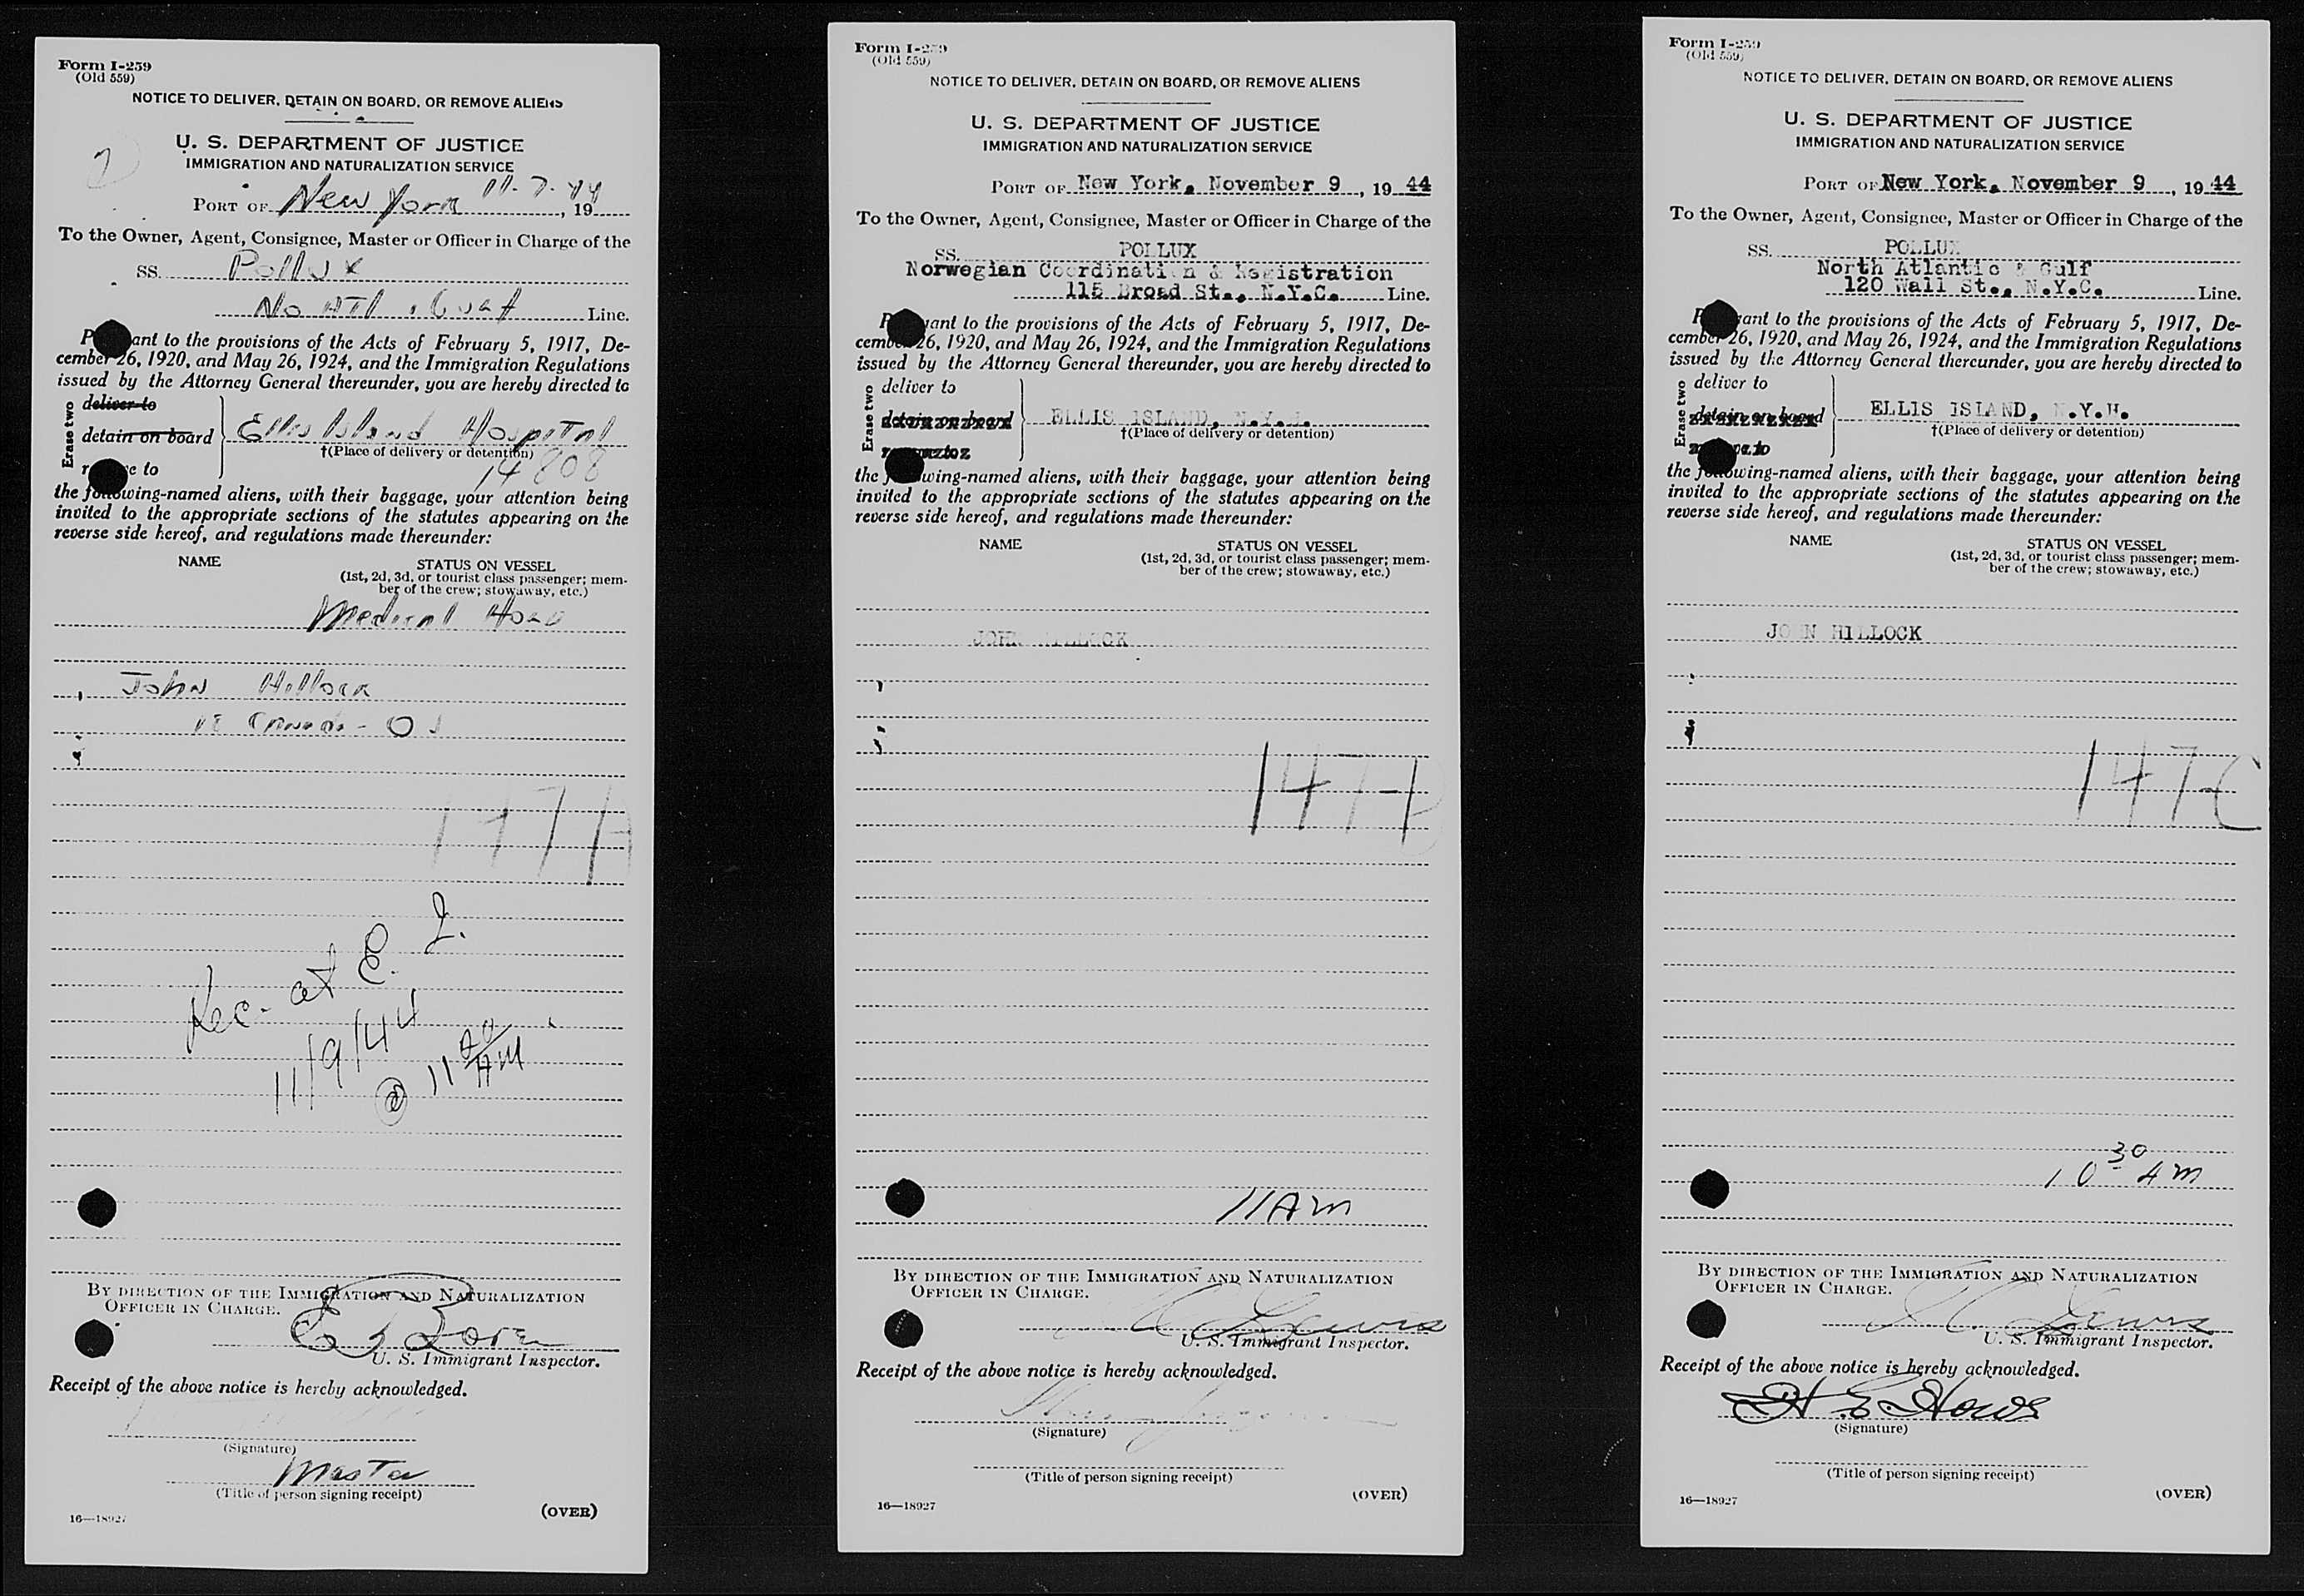 Form I-259
(Old 559)
NOTICE TO DELIVER, DETAIN ON BOARD, OR REMOVE ALIENS
U. S. DEPARTMENT OF JUSTICE
IMMIGRATION AND NATURALIZATION SERVICE
PORT OF New York 11-7-44, 19
To the Owner, Agent, Consignee, Master or Officer in Charge of the
SS. Pollux
No Atl & Gulf Line.
ant to the provisions of the Acts of February 5, 1917, De-
cember 26, 1920, and May 26, 1924, and the Immigration Regulations
issued by the Attorney General thereunder, you are hereby directed to
Erase two
deliver to
detain on board
Ellis Island Hospital
†(Place of delivery or detention)
to
14808
the following-named aliens, with their baggage, your attention being
invited to the appropriate sections of the statutes appearing on the
reverse side hereof, and regulations made thereunder:
NAME
STATUS ON VESSEL
(1st, 2d, 3d, or tourist class passenger; mem-
ber of the crew; stowaway, etc.)
Medical Hold
John Hillock
147A
Rec- at E. I.
11/9/44
@ 11 20 AM
BY DIRECTION OF THE IMMIGRATION AND NATURALIZATION
OFFICER IN CHARGE.
U. S. Immigrant Inspector.
Receipt of the above notice is hereby acknowledged.
(Signature)
Master
(Title of person signing receipt)
(OVER)
16—18927
Form I-259
(Old 559)
NOTICE TO DELIVER, DETAIN ON BOARD, OR REMOVE ALIENS
U. S. DEPARTMENT OF JUSTICE
IMMIGRATION AND NATURALIZATION SERVICE
PORT OF New York, November 9, 19 44
To the Owner, Agent, Consignee, Master or Officer in Charge of the
SS. POLLUX
Norwegian Coordination & Registration
115 Broad St., N.Y.C. Line.
ant to the provisions of the Acts of February 5, 1917, De-
cember 26, 1920, and May 26, 1924, and the Immigration Regulations
issued by the Attorney General thereunder, you are hereby directed to
Erase two
deliver to
detain on board
ELLIS ISLAND, N.Y.H.
†(Place of delivery or detention)
the following-named aliens, with their baggage, your attention being
invited to the appropriate sections of the statutes appearing on the
reverse side hereof, and regulations made thereunder:
NAME
STATUS ON VESSEL
(1st, 2d, 3d, or tourist class passenger; mem-
ber of the crew; stowaway, etc.)
JOHN HILLOCK
147-B
11AM
BY DIRECTION OF THE IMMIGRATION AND NATURALIZATION
OFFICER IN CHARGE.
C Lewis
U. S. Immigrant Inspector.
Receipt of the above notice is hereby acknowledged.
(Signature)
(Title of person signing receipt)
(OVER)
16—18927
Form I-259
(Old 559)
NOTICE TO DELIVER, DETAIN ON BOARD, OR REMOVE ALIENS
U. S. DEPARTMENT OF JUSTICE
IMMIGRATION AND NATURALIZATION SERVICE
PORT OF New York, November 9, 19 44
To the Owner, Agent, Consignee, Master or Officer in Charge of the
SS. POLLUX
North Atlantic & Gulf
120 Wall St., N.Y.C. Line.
ant to the provisions of the Acts of February 5, 1917, De-
cember 26, 1920, and May 26, 1924, and the Immigration Regulations
issued by the Attorney General thereunder, you are hereby directed to
Erase two
deliver to
detain on board
ELLIS ISLAND, N.Y.H.
†(Place of delivery or detention)
the following-named aliens, with their baggage, your attention being
invited to the appropriate sections of the statutes appearing on the
reverse side hereof, and regulations made thereunder:
NAME
STATUS ON VESSEL
(1st, 2d, 3d, or tourist class passenger; mem-
ber of the crew; stowaway, etc.)
JOHN HILLOCK
147-C
10 30 AM
BY DIRECTION OF THE IMMIGRATION AND NATURALIZATION
OFFICER IN CHARGE.
C Lewis
U. S. Immigrant Inspector.
Receipt of the above notice is hereby acknowledged.
(Signature)
(Title of person signing receipt)
(OVER)
16—18927